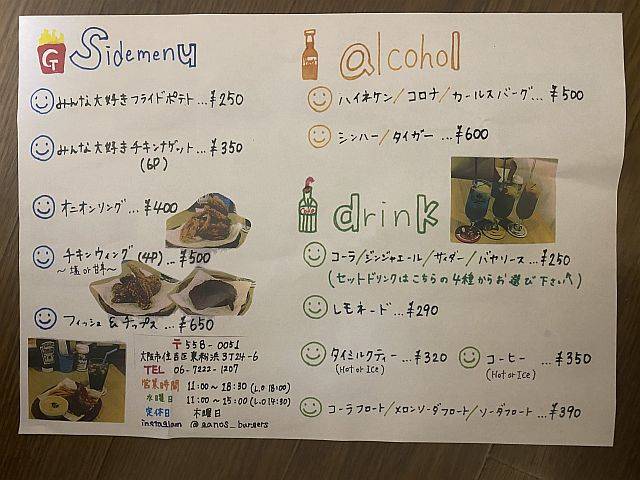 Sidemenu
みんな大好きフライドポテト…¥250
みんな大好きチキンナゲット…¥350
(6P)
オニオンリング…¥400
チキンウィング(4P)…¥500
〜塩 or 甘辛〜
フィッシュ & チップス…¥650
〒558-0051
大阪市住吉区東粉浜3丁24-6
TEL 06-7222-1207
営業時間 11:00〜18:30 (L.O 18:00)
水曜日 11:00〜15:00 (L.O 14:30)
定休日 木曜日
instagram @ganos_burgers
alcohol
ハイネケン/コロナ/カールスバーグ…¥500
シンハー/タイガー…¥600
drink
コーラ/ジンジャエール/サイダー/バヤリース…¥250
(セットドリンクはこちらの4種からお選び下さい↑)
レモネード…¥290
タイミルクティー…¥320
(Hot or Ice)
コーヒー…¥350
(Hot or Ice)
コーラフロート/メロンソーダフロート/ソーダフロート…¥390